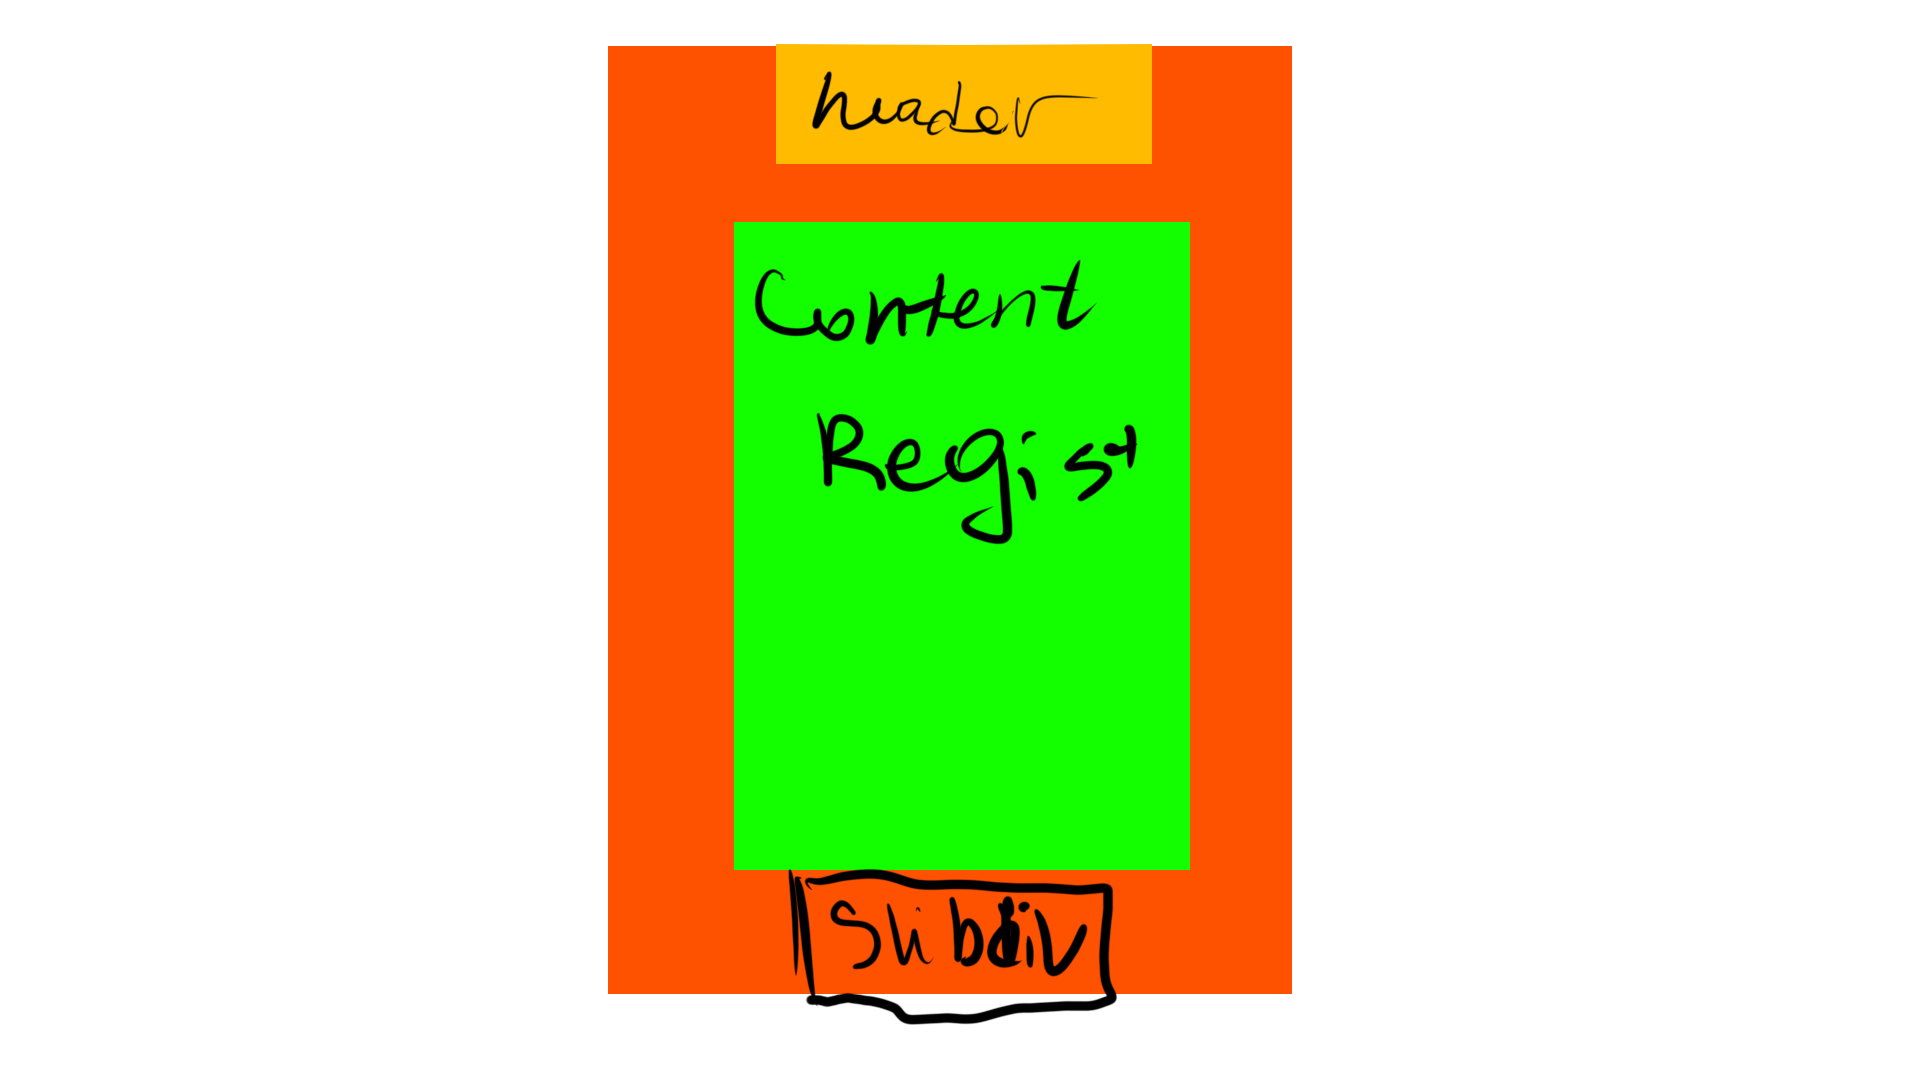 header
Content
Regist
Subdiv